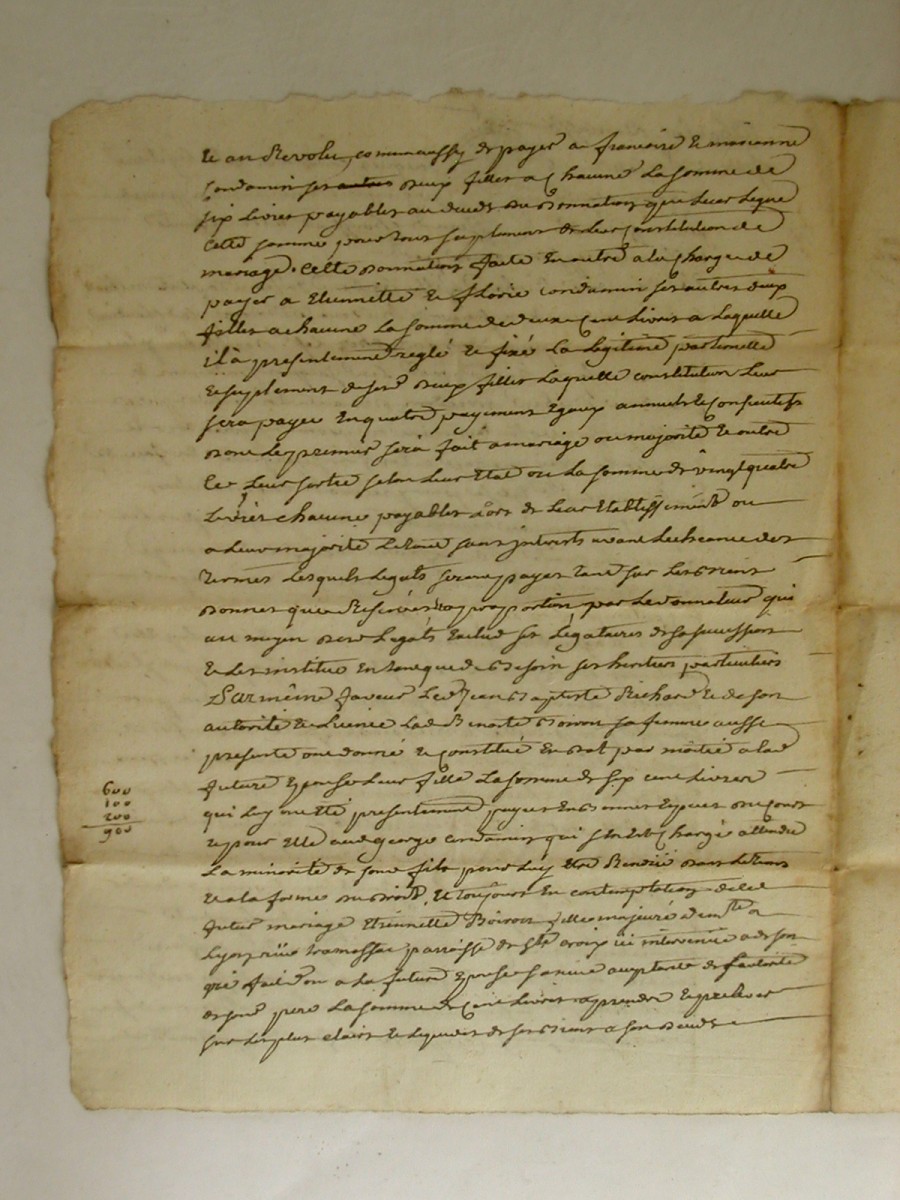 et an Revolu, comme aussy de payer a francoise et marianne
Condamin ses autres deux filles a chacune La somme de
six Livres payables au deces du donnateur que leur legue
cette somme pour tous suplement de Leur constitution de
mariage. Cette donnation faite En outre a la charge de
payer a Etiennette et florie condamin ses autres deux
filles a chacune La somme de deux cent Livres a Laquelle
il à presentement reglé et fixé La Legitime paternelle
et suplement de sesd deux filles Laquelle constitution Leur
sera payée En quatre payements Egaux annuels et consecutifs
dont Le premier sera fait a mariage ou majorité et outre
ce Leur sortie selon Leur Etat ou La somme de vingt quatre
Livres chacune payables Lors de Leur Etablissement ou
a Leur majorité Le tout sans interets avant L'echeance des
termes Lesquels Legats seront payés tant sur Les biens
donnés que Reservés a proportion par Le donnateur qui
au moyen desd Legats Exclud ses Légataires de sa succession
et Les institue En tant que de besoin ses heritiers particuliers
Par même faveur Led Jean Baptiste Richard et de son
autorité et Licence Lad Benoite Boiron sa femme aussi
presente ont donné et constitué En dot par moitié a lad
future Epouse Leur fille La somme de six cent Livres
qui Luy ont Eté presentement payés En bonnes Especes du cours
et pour Elle aud george condamin qui s'en Est chargé attendu
La minorité de sond fils pour Luy Etre Rendüe dans Le tems
et a la forme du droit, Et toujours En contemplation dud
futur mariage Etiennette Boiron fille majeure demte a
Lyon rüe tramassac parroisse de Ste croix ici intervenüe a de son
gré fait don a la future Epouse sa niece acceptante de L'autorité
de sond pere La somme de cent Livres a prendre et prelever
sur Les plus clairs et Liquides de ses biens a son deces
600
100
200
900